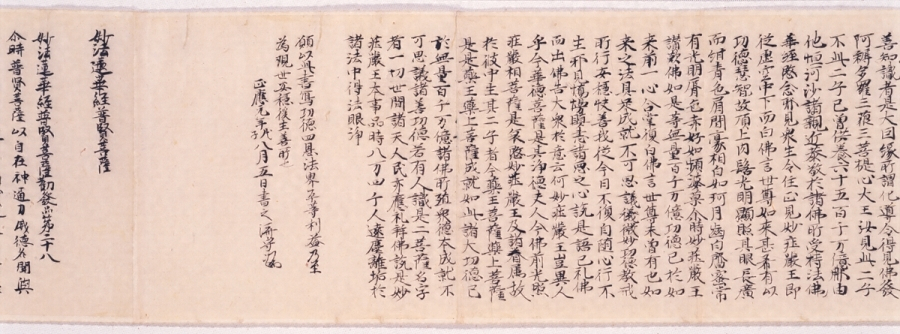 善知識者是大因縁所謂化導令得見佛發
阿耨多羅三藐三菩提心大王汝見此二子
不此二子已曾供養六十五百千万億那由
他恒河沙諸佛親近恭敬於諸佛所受持法花
經愍念邪見衆生令住正見妙荘嚴王即
從虚空中下而白佛言世尊如来甚希有以
功徳智慧故頂上肉髻光明顯照其眼長廣
而紺青色眉間毫相白如珂月歯白齊密常
有光明脣色赤好如頻婆菓尒時妙荘嚴王
讃歎佛如是等無量百千万億功徳已於如
来前一心合掌復白佛言世尊未曾有也如
来之法具足成就不可思議微妙功徳教戒
所行安穏快善我従今日不復自随心行不
生邪見憍慢瞋恚諸悪之心説是語已礼佛
而出佛告大衆於意云何妙荘嚴王豈異人
乎今華徳菩薩是其浄徳夫人今佛前光照
荘嚴相菩薩是哀愍妙荘嚴王及諸眷属故
於彼中生其二子者今藥王菩薩藥上菩薩
是是藥王藥上菩薩成就如此諸大功徳已
於無量百千万億諸佛所殖衆徳本成就不
可思議諸善功徳若有人識是二菩薩名字
者一切世間諸天人民亦應礼拜佛説是妙
荘嚴王本事品時八万四千人遠塵離垢於
諸法中得法眼浄
願以此書写功徳四恩法界平等利益乃至
為現世安穏後生善所
正應元年 八月五日書之
妙法蓮華經普賢菩薩
妙法蓮華經普賢菩薩勸發品第二十八
尒時普賢菩薩以自在神通力威徳名聞與